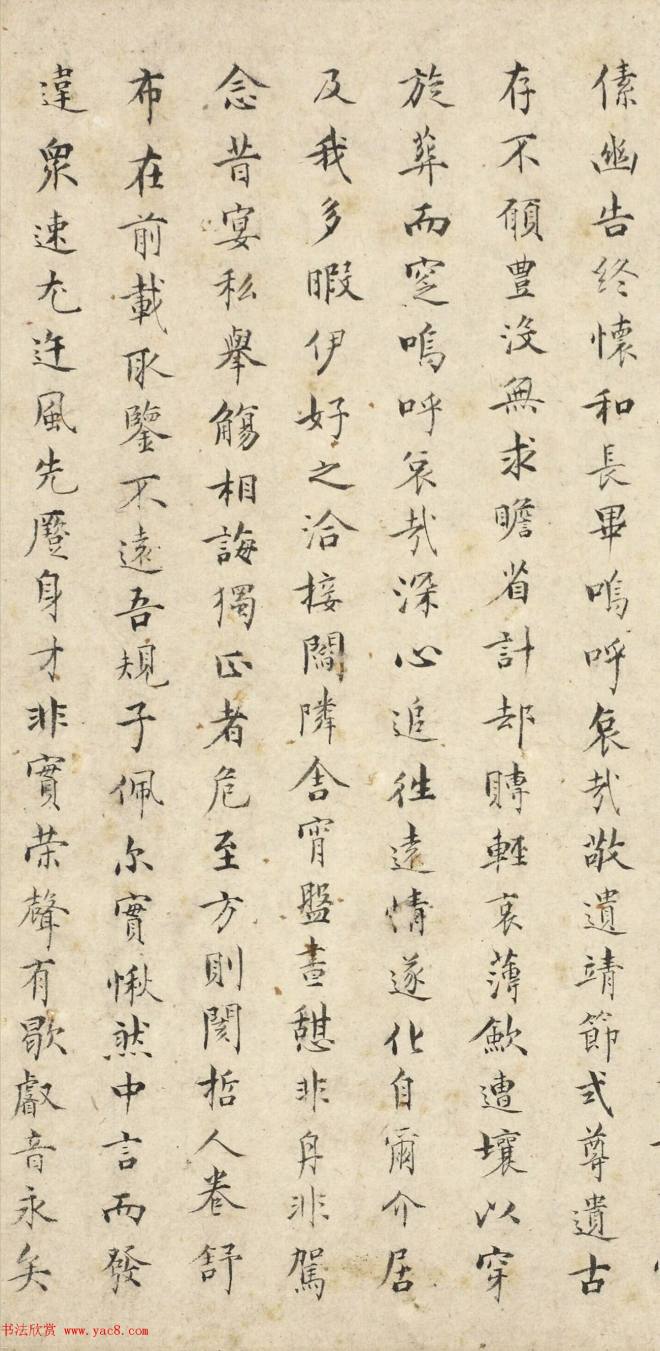 傃幽告終懷和長畢嗚呼哀哉敬遺靖節式尊遺古
存不願豊沒無求贍省計却賻輕哀薄歛遭壤以穿
旋葬而窆嗚呼哀哉深心追往遠情逐化自爾介居
及我多暇伊好之洽接閻隣舍宵盤晝憇非舟非駕
念昔宴私舉觴相誨獨正者危至方則閡哲人卷舒
布在前載取鑒不遠吾規子佩尓實愀然中言而發
違衆速尤迕風先蹷身才非實荣聲有歇叡音永矣
书法欣赏 www.yac8.com